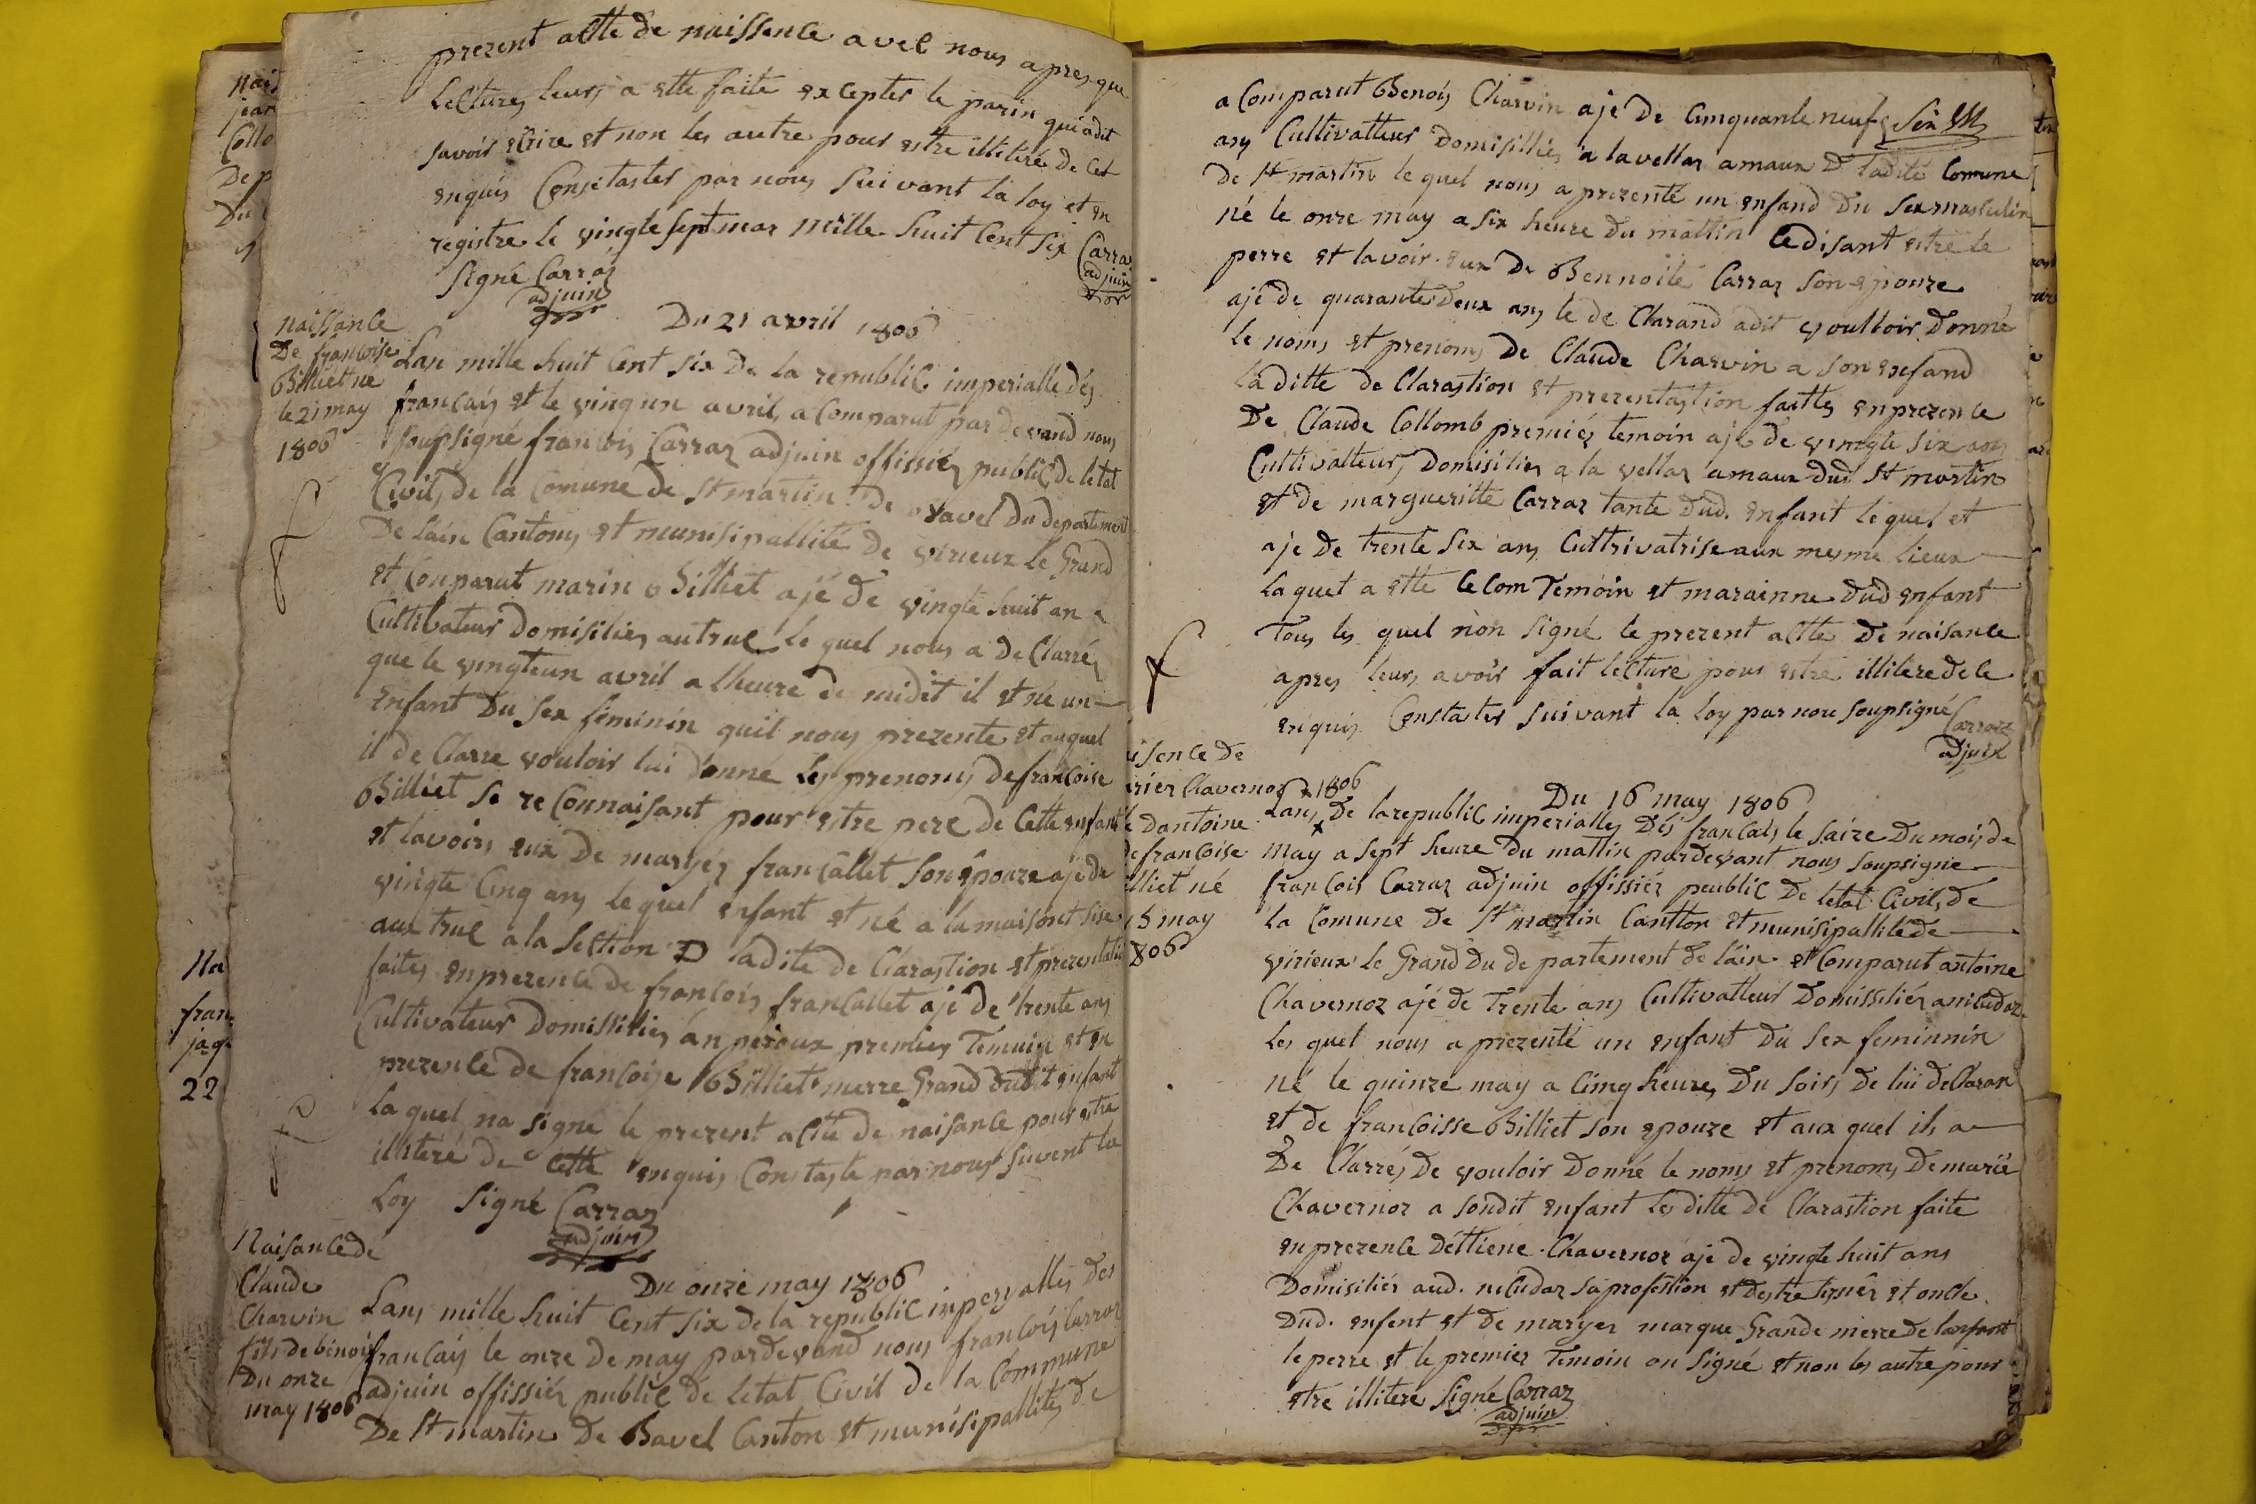 prezent actte de naissence avec nous apres que
Lectures leurs a ette faite excepter le parin qui adit
savoir ecrire et non les autre pour estre illiteré de cet
enquis Consetaster par nous suivant la loy et en
registre le vingte sept mar mille huit Cent six Carraz
adjuin
signé Carraz
adjuin
naissance
De françoise
Billiet ne
le 21 may
1806
Du 21 avril 1806
Lan mille huit Cent six De La republic imperialle dés
francais et le vingun avril, a Comparut par devand nous
soupsigné francois Carraz adjuin offissiér public de letat
Civils de la Comune de St martin De Bavel Du departement
De Lain Cantons et munisipallité de virieux le Grand
et Conparut marin Billiet ajé de vingte huit an
Cultibateur domisiliés au truc le quel nous a de Clarrés
que le vingteun avril a lheure de midit il et né un
Enfant Du sex féminin quil nous prezente et auquel
il de Clarre vouloir lui donné les prenoms de francoise
Billiet se re Connaisant pour estre pere de Cette enfant
et lavoirs eux De maryés francallet son épouze ajé de
vingte Cinq ans le quel enfant et né a la maisont sise
aux truc a la section D ladite de Clarastion et prezentation
faites enprezence de francois francallet ajé de trente ans
Cultivateur Domissiliés an péroux premier Temuin et en
prezence de francoise Billiet merre Grand dudit enfant
La quel na signé le prezent actte de naisance pour estre
illiteré de cette enquis Constaste par nous suivent la
Loy signé Carraz
adjuin
Naisance de
Claude
Charvin
fils de binoit
Du onze
may 1806
Du onze may 1806
Lans mille huit Cent six de la republic inperyalles des
francais le onze de may pardevand nous francois Carraz
adjuin offissiér public de letat Civil de la Commune
De St martin De Bavel Canton et munisipallités de
a Comparut Benois Charvin aje De Cinquante neuf
ans Cultivatteur Domisilliés a lavellaz amaux D ladité Comune
de St martin le quel nous a prezenté un enfand Du sex masculin
né le onze may a six heure du mattin Ce disant estre le
perre et lavoir eux De Bennoite Carraz son epouze
ajé de quarante Deux ans le de Clarand adit voulloir Donné
le noms et prenoms De Claude Charvin a son enfand
La ditte de Clarastion et prezentastion faittes enprezence
De Claude Collomb premiés temoin ajé de vingte six ans
Cultivatteurs Domisiliés a la vellaz amaux dud St martin
et de margueritte Carraz tante Dud. enfant lequel et
aje De trente six ans Cultivatrise aux mesme lieux
Laquel a ette le Com Témoin et marainne Dud enfant
Tous les quel non signé le prezent actte De naisance
apres leurs avoir fait lecture pour estre illitere de ce
enquis Constater suivant la Loy par nou soupsigné Carraz
adjuin
Du 16 may 1806
1806
Lans De la republic imperialles Dés francais le saize Du mois de
may a sept heure Du mattin pardevant nous soupsigne
francois Carraz adjuin offissiér peublic De letat Civils de
La Comune De St martin Cantton et munisipallité de
virieux le Grand Du departement De láin. et Comparut antoine
Chavernoz ajé de Trente ans Cultivatteur Domissiliés
Les quel nous a prezenté un enfant Du sex feminnin
né le quinze may a Cinq heures Du soirs de lui deClaran
et de francoisse Billiet son epouze et aux quel ils a
De Clarrés de vouloir Donné le noms et prenoms De marie
Chavernoz a sondit enfant Les ditte de Clarastion faite
enprezence Déttiene Chavernoz ajé de vingte huit ans
Domisiliés aud. sa profestion et onclle
Dud. enfent et de maryes marque Grande merre de lanfant
le perre et le premier Temoin on signé et non les autre pour
etre illitere signé Carraz
adjuin